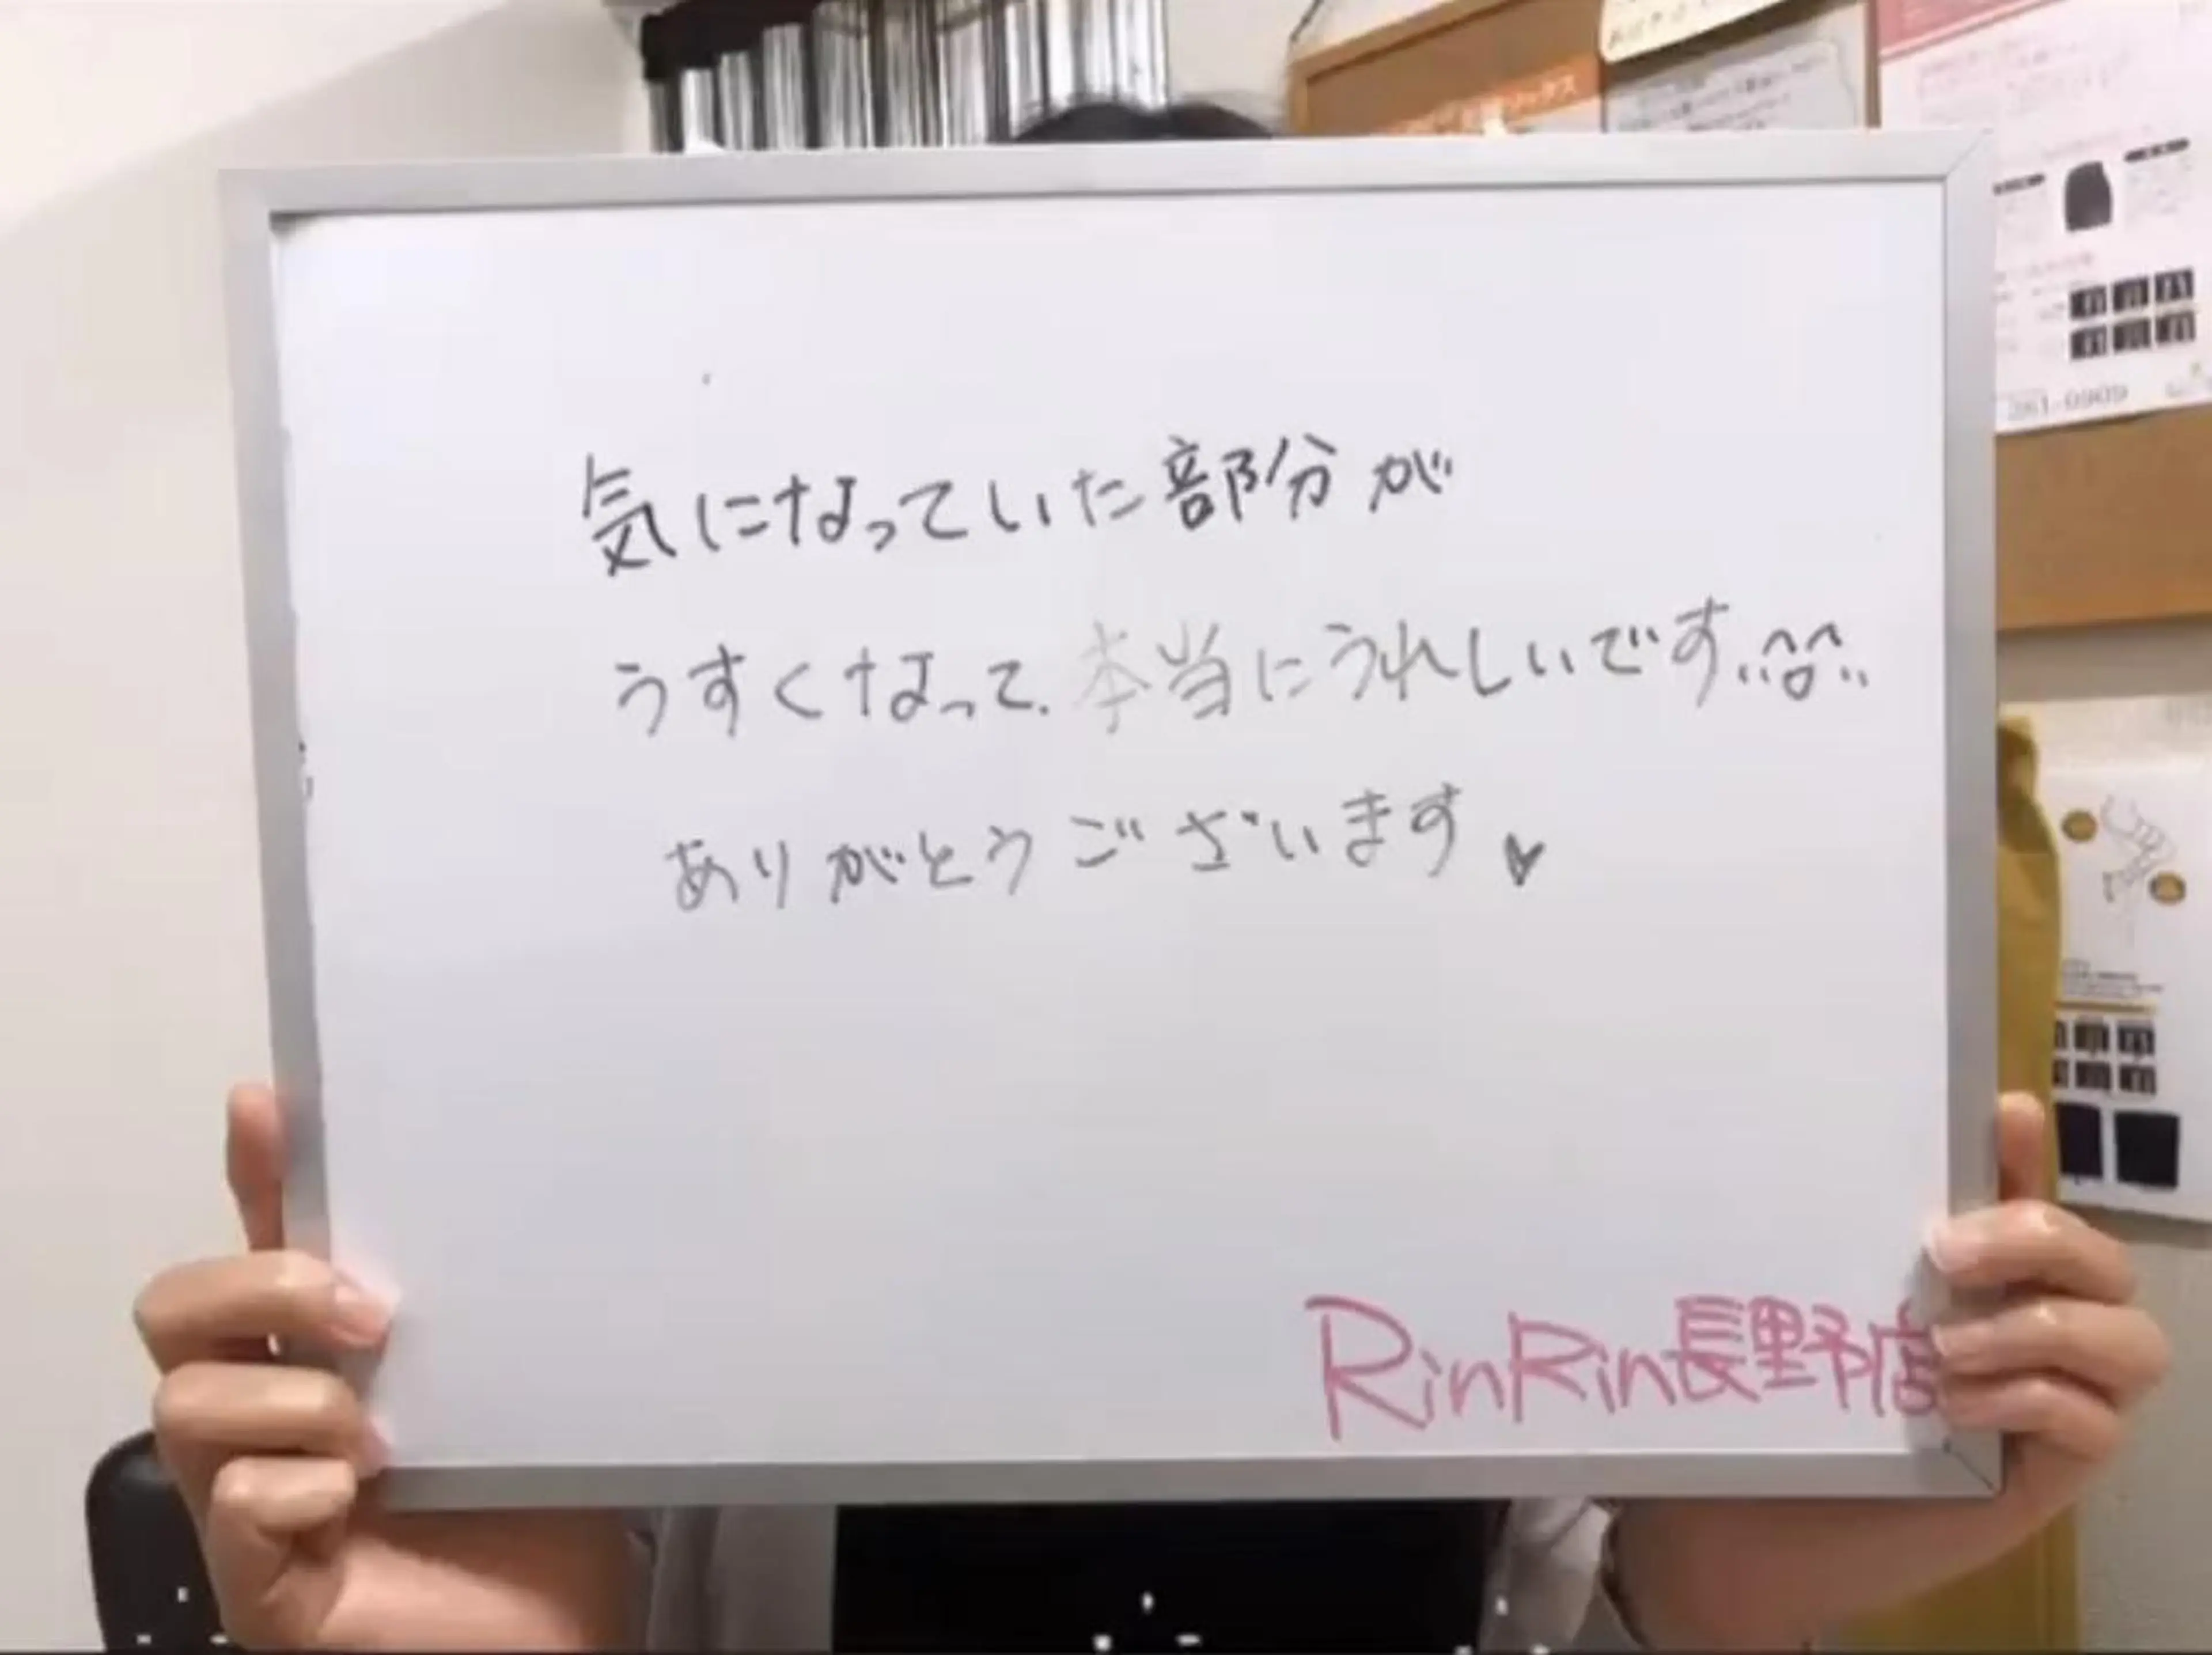 気になっていた部分が
うすくなって、本当にうれしいです¨^o^¨
ありがとうございます♥
RinRin長野店